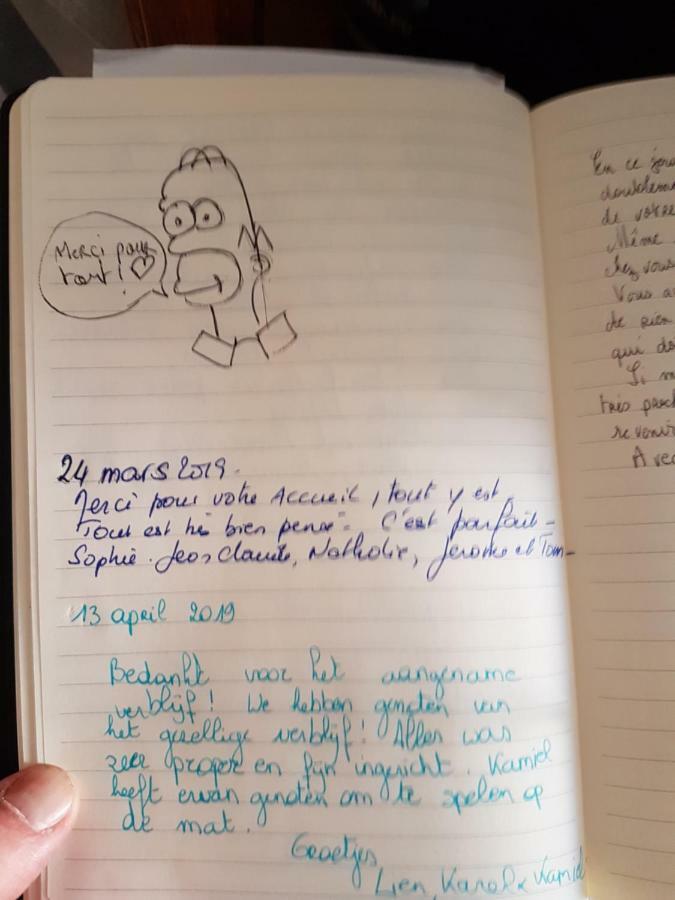 Merci pour
tout! ♡
24 mars 2019.
Merci pour votre Accueil, tout y est,
Tout est très bien pensé. C'est parfait -
Sophie. Jean Claude, Nathalie, Jerome et Tom -
13 april 2019
Bedankt voor het aangename
verblijf! We hebben genoten van
het gezellige verblijf! Alles was
zeer proper en fijn ingericht. Kamiel
heeft ervan genoten om te spelen op
de mat.
Groetjes
Lien, Karel & Kamiel
En ce
de votre
Même
chez vous
Vous
de rien
qui
Si
très
revenir
Avec